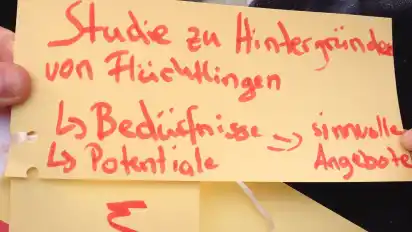 Studie zu Hintergründen
von Flüchtlingen
↳ Bedürfnisse => sinnvolle
↳ Potentiale Angebote